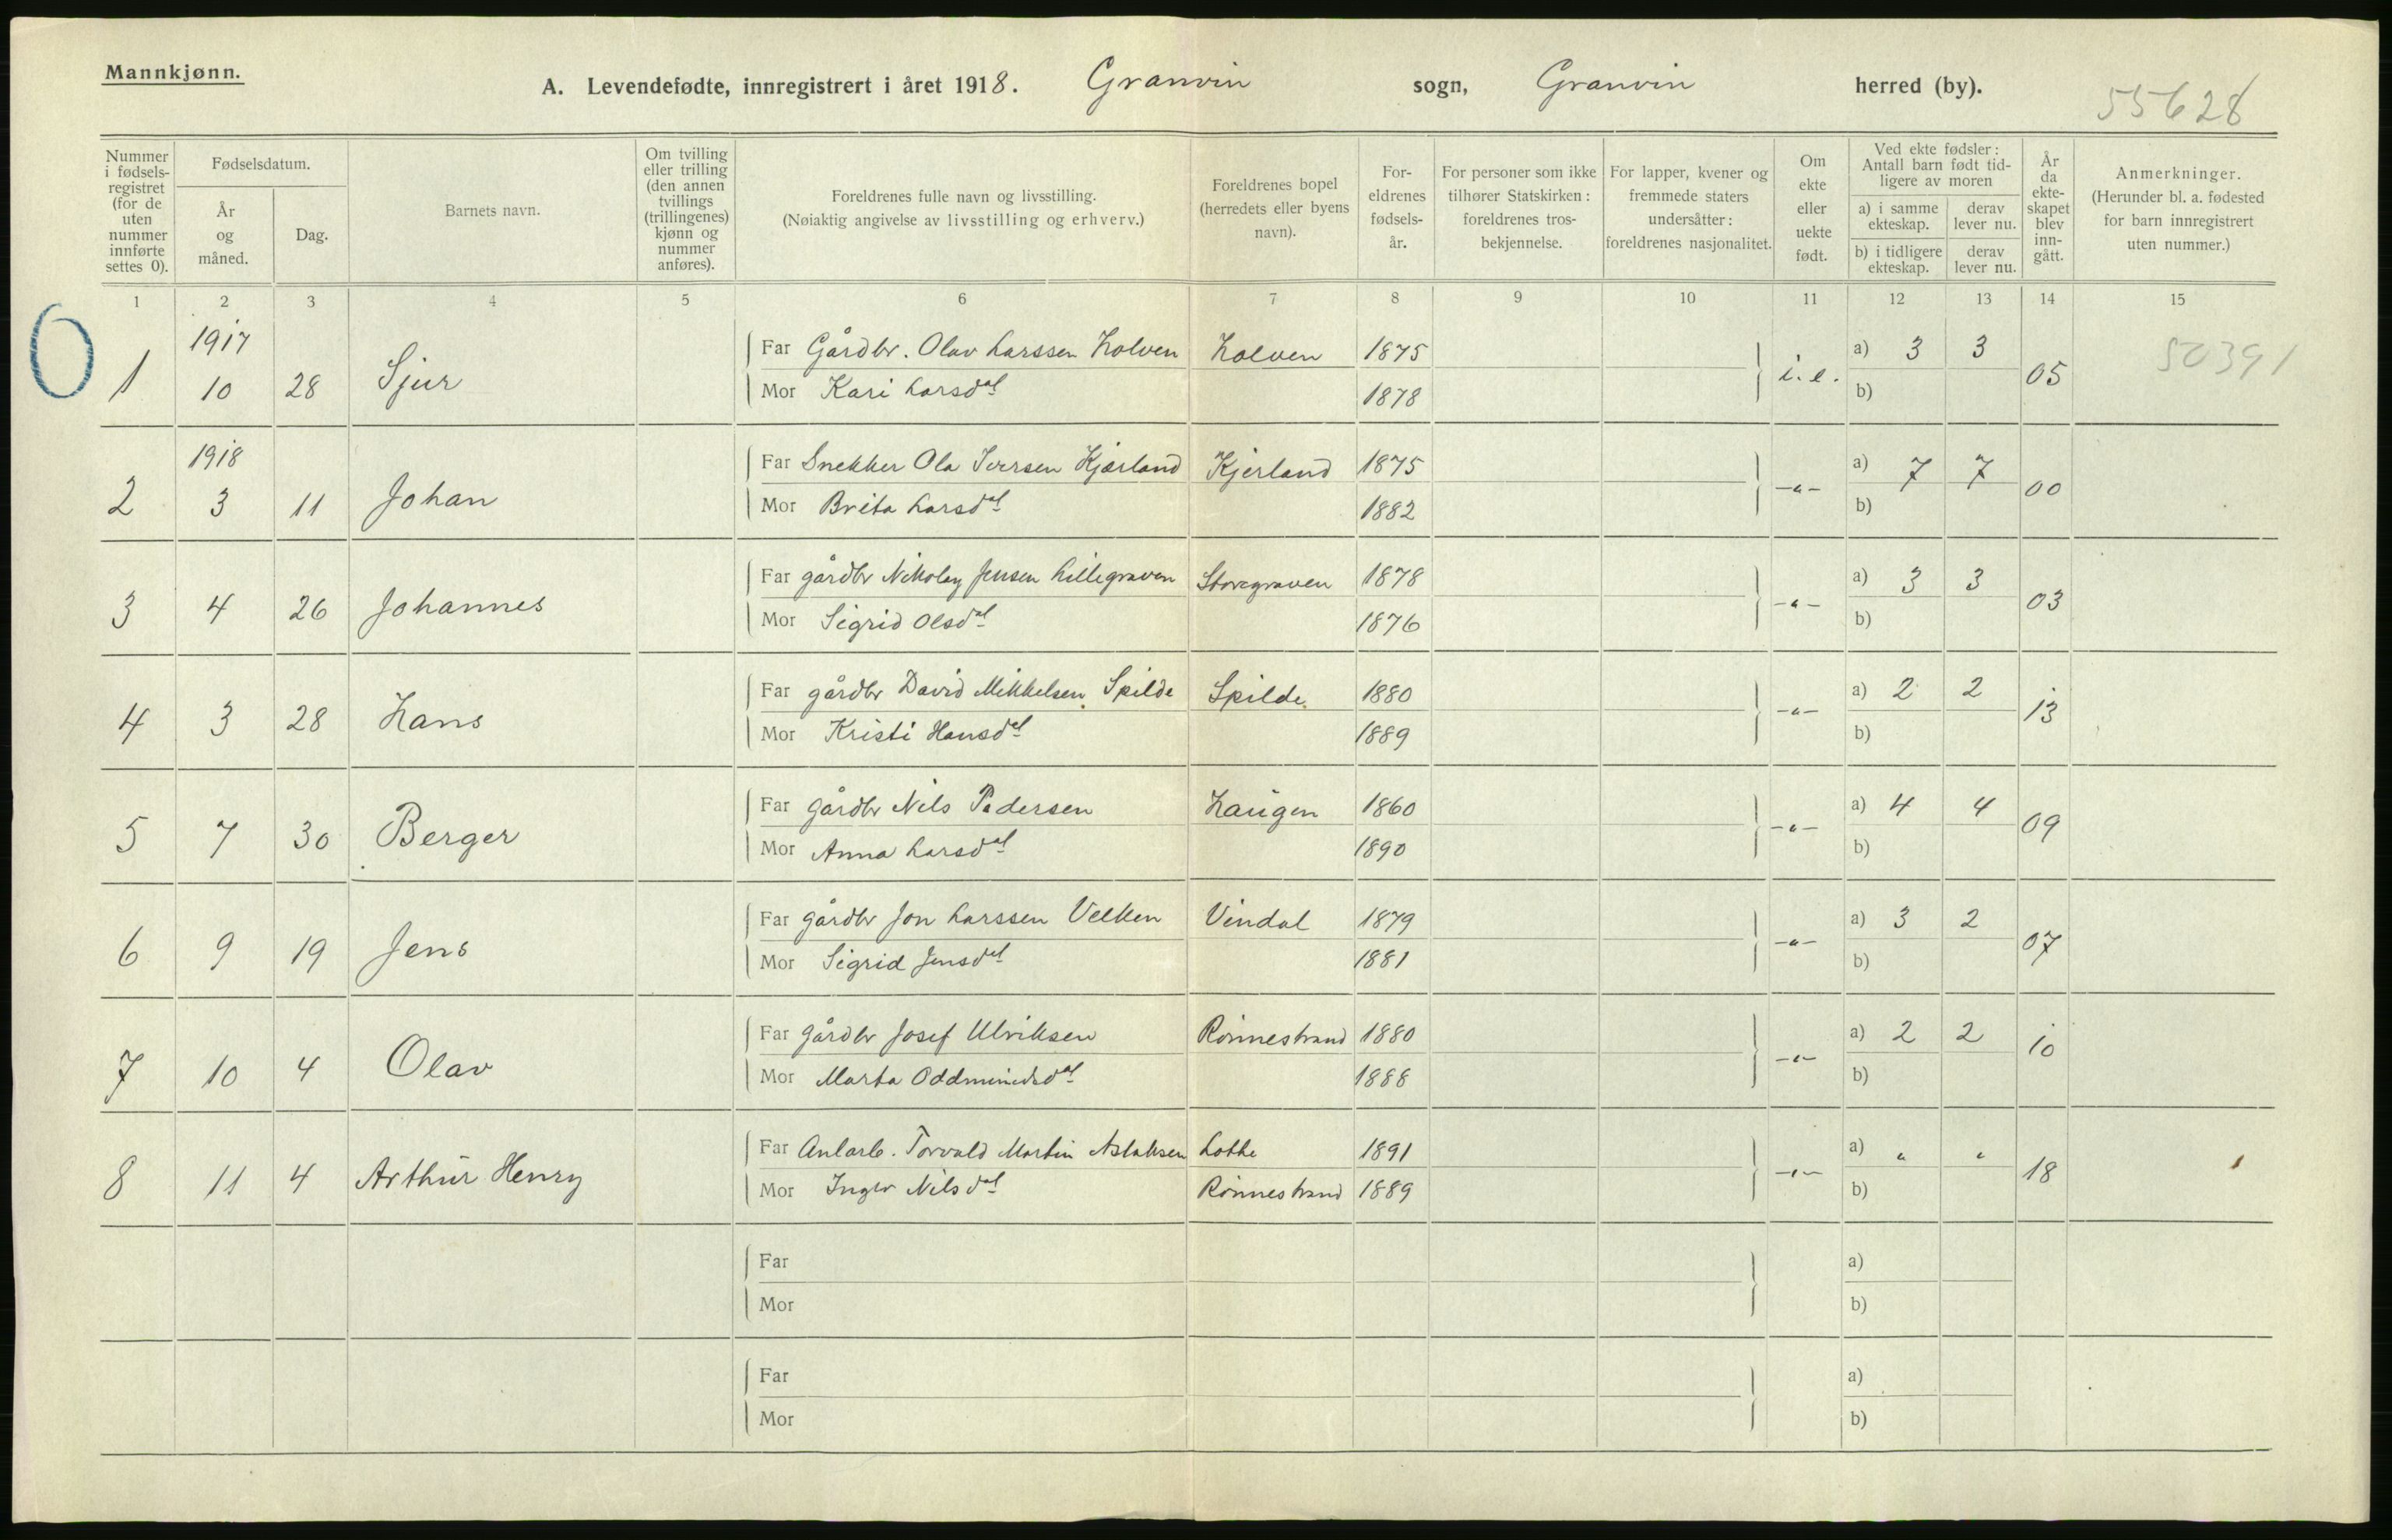 Mannkjønn.
A. Levendefødte, innregistrert i året 1918. Granvin sogn, Granvin herred (by).
55628
Nummer i fødselsregistret (for de uten nummer innførte settes 0).
Fødselsdatum.
År og måned.
Dag.
Barnets navn.
Om tvilling eller trilling (den annen tvillings (trillingenes) kjønn og nummer anføres).
Foreldrenes fulle navn og livsstilling.
(Nøiaktig angivelse av livsstilling og erhverv.)
Foreldrenes bopel (herredets eller byens navn).
For-eldrenes fødsels-år.
For personer som ikke tilhører Statskirken: foreldrenes tros-bekjennelse.
For lapper, kvener og fremmede staters undersåtter: foreldrenes nasjonalitet.
Om ekte eller uekte født.
Ved ekte fødsler: Antall barn født tid-ligere av moren
a) i samme ekteskap.
derav lever nu.
b) i tidligere ekteskap.
derav lever nu.
År da ekte-skapet blev inn-gått.
Anmerkninger.
(Herunder bl. a. fødested for barn innregistrert uten nummer.)
1 2 3 4 5 6 7 8 9 10 11 12 13 14 15
0
1917
Far Gårdbr. Olav Larssen Holven Holven 1875 a) 3 3 50391
1 10 28 Sjur i. e. 05
Mor Kari Larsdat 1878 b)
1918
Far Snekker Ola Iversen Kjærland Kjerland 1875 a) 7 7
2 3 11 Johan -"- 00
Mor Brita Larsdat 1882 b)
Far gårdbr Nikolay Jensen Lillegraven Storegraven 1878 a) 3 3
3 4 26 Johannes -"- 03
Mor Sigrid Olsdat 1876 b)
Far gårdbr David Mikkelsen Spilde Spilde 1880 a) 2 2
4 3 28 Hans -"- 13
Mor Kristi Hansdat 1889 b)
Far gårdbr Nils Pedersen Haugen 1860 a) 4 4
5 7 30 Berger -"- 09
Mor Anna Larsdat 1890 b)
Far gårdbr Jon Larssen Velken Vindal 1879 a) 3 2
6 9 19 Jens -"- 07
Mor Sigrid Jensdat 1881 b)
Far gårdbr Josef Ulriksen Rønnestrand 1880 a) 2 2
7 10 4 Olav -"- 10
Mor Marta Oddmundsdat 1888 b)
Far Anlarb. Torvald Martin Aslaksen Lothe 1891 a) " "
8 11 4 Arthur Henry -"- 18
Mor Inger Nilsdat Rønnestrand 1889 b)
Far a)
Mor b)
Far a)
Mor b)